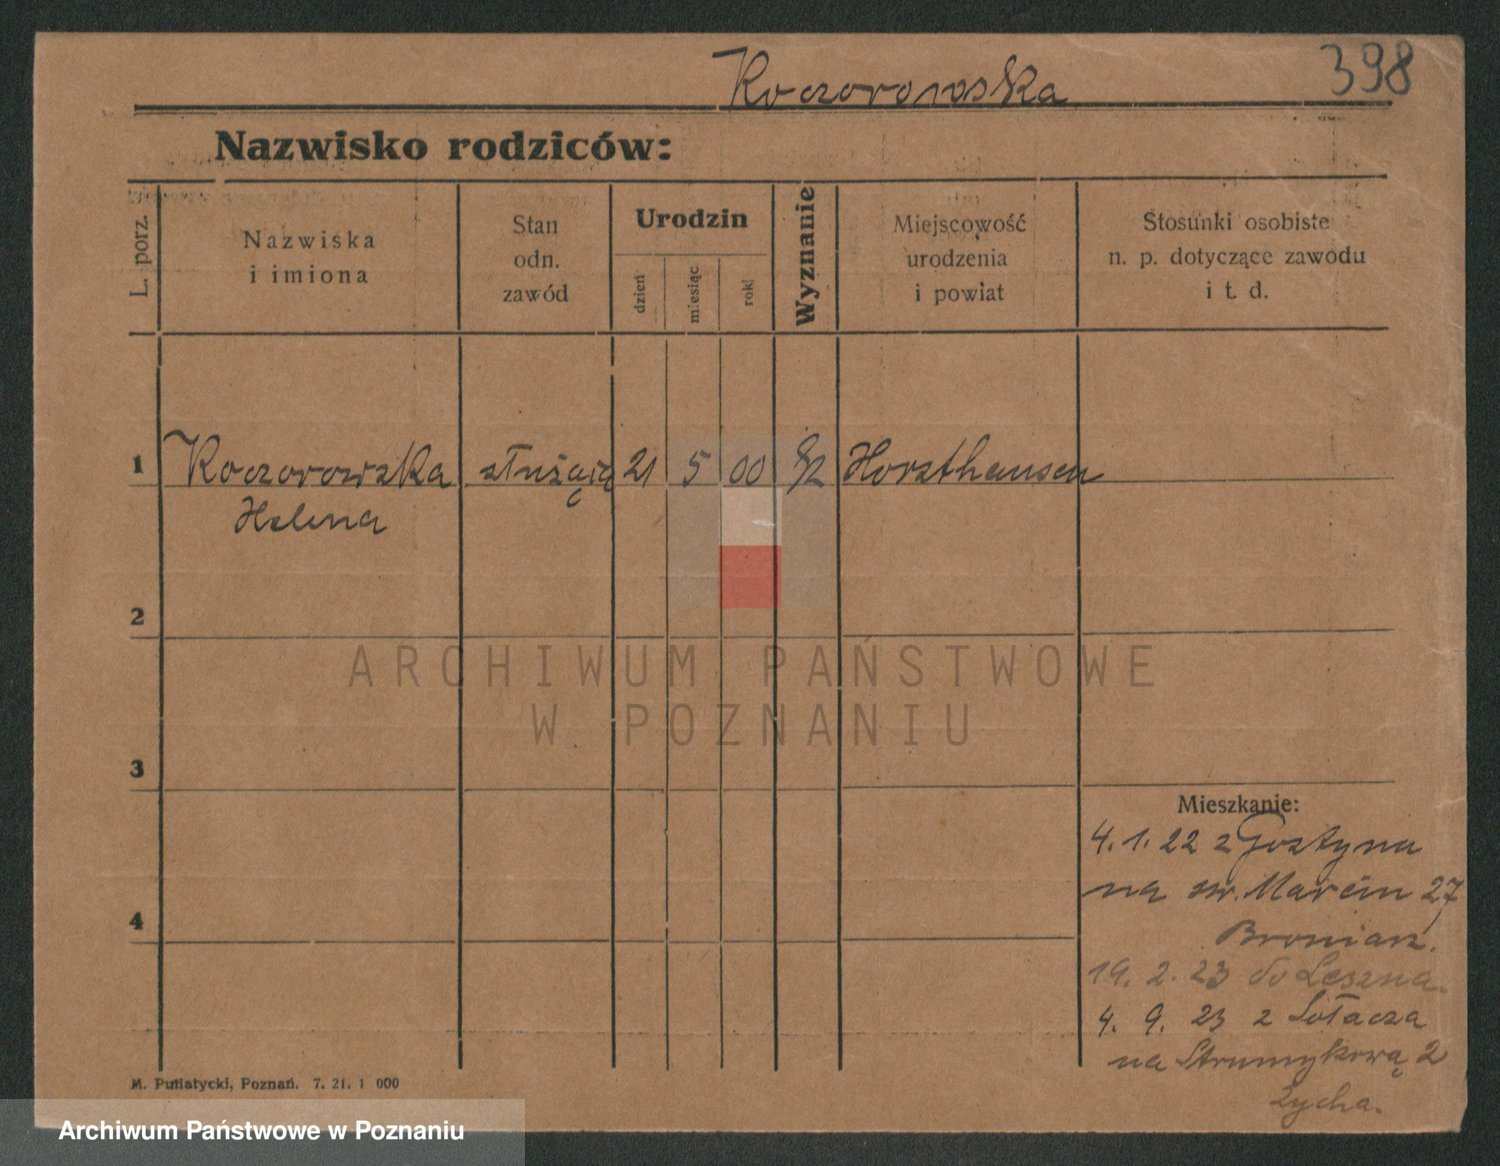 Koczorowska
398
Nazwisko rodziców:
L. porz.
Nazwiska
i imiona
Stan
odn.
zawód
Urodzin
dzień
miesiąc
rok
Wyznanie
Miejscowość
urodzenia
i powiat
Stosunki osobiste
n. p. dotyczące zawodu
i t. d.
1 Koczorowska służąca 21 5 00 Horsthausen
Helena
2
ARCHIWUM PAŃSTWOWE
W POZNANIU
3
Mieszkanie:
4. 1. 22 z Gostyna
na św. Marcin 27
4
Broniarz.
19. 2. 23 do Leszna.
4. 9. 23 z Sołacza
na Strumykową 2
Łycha.
M. Putiatycki, Poznań. 7. 21. 1 000
Archiwum Państwowe w Poznaniu